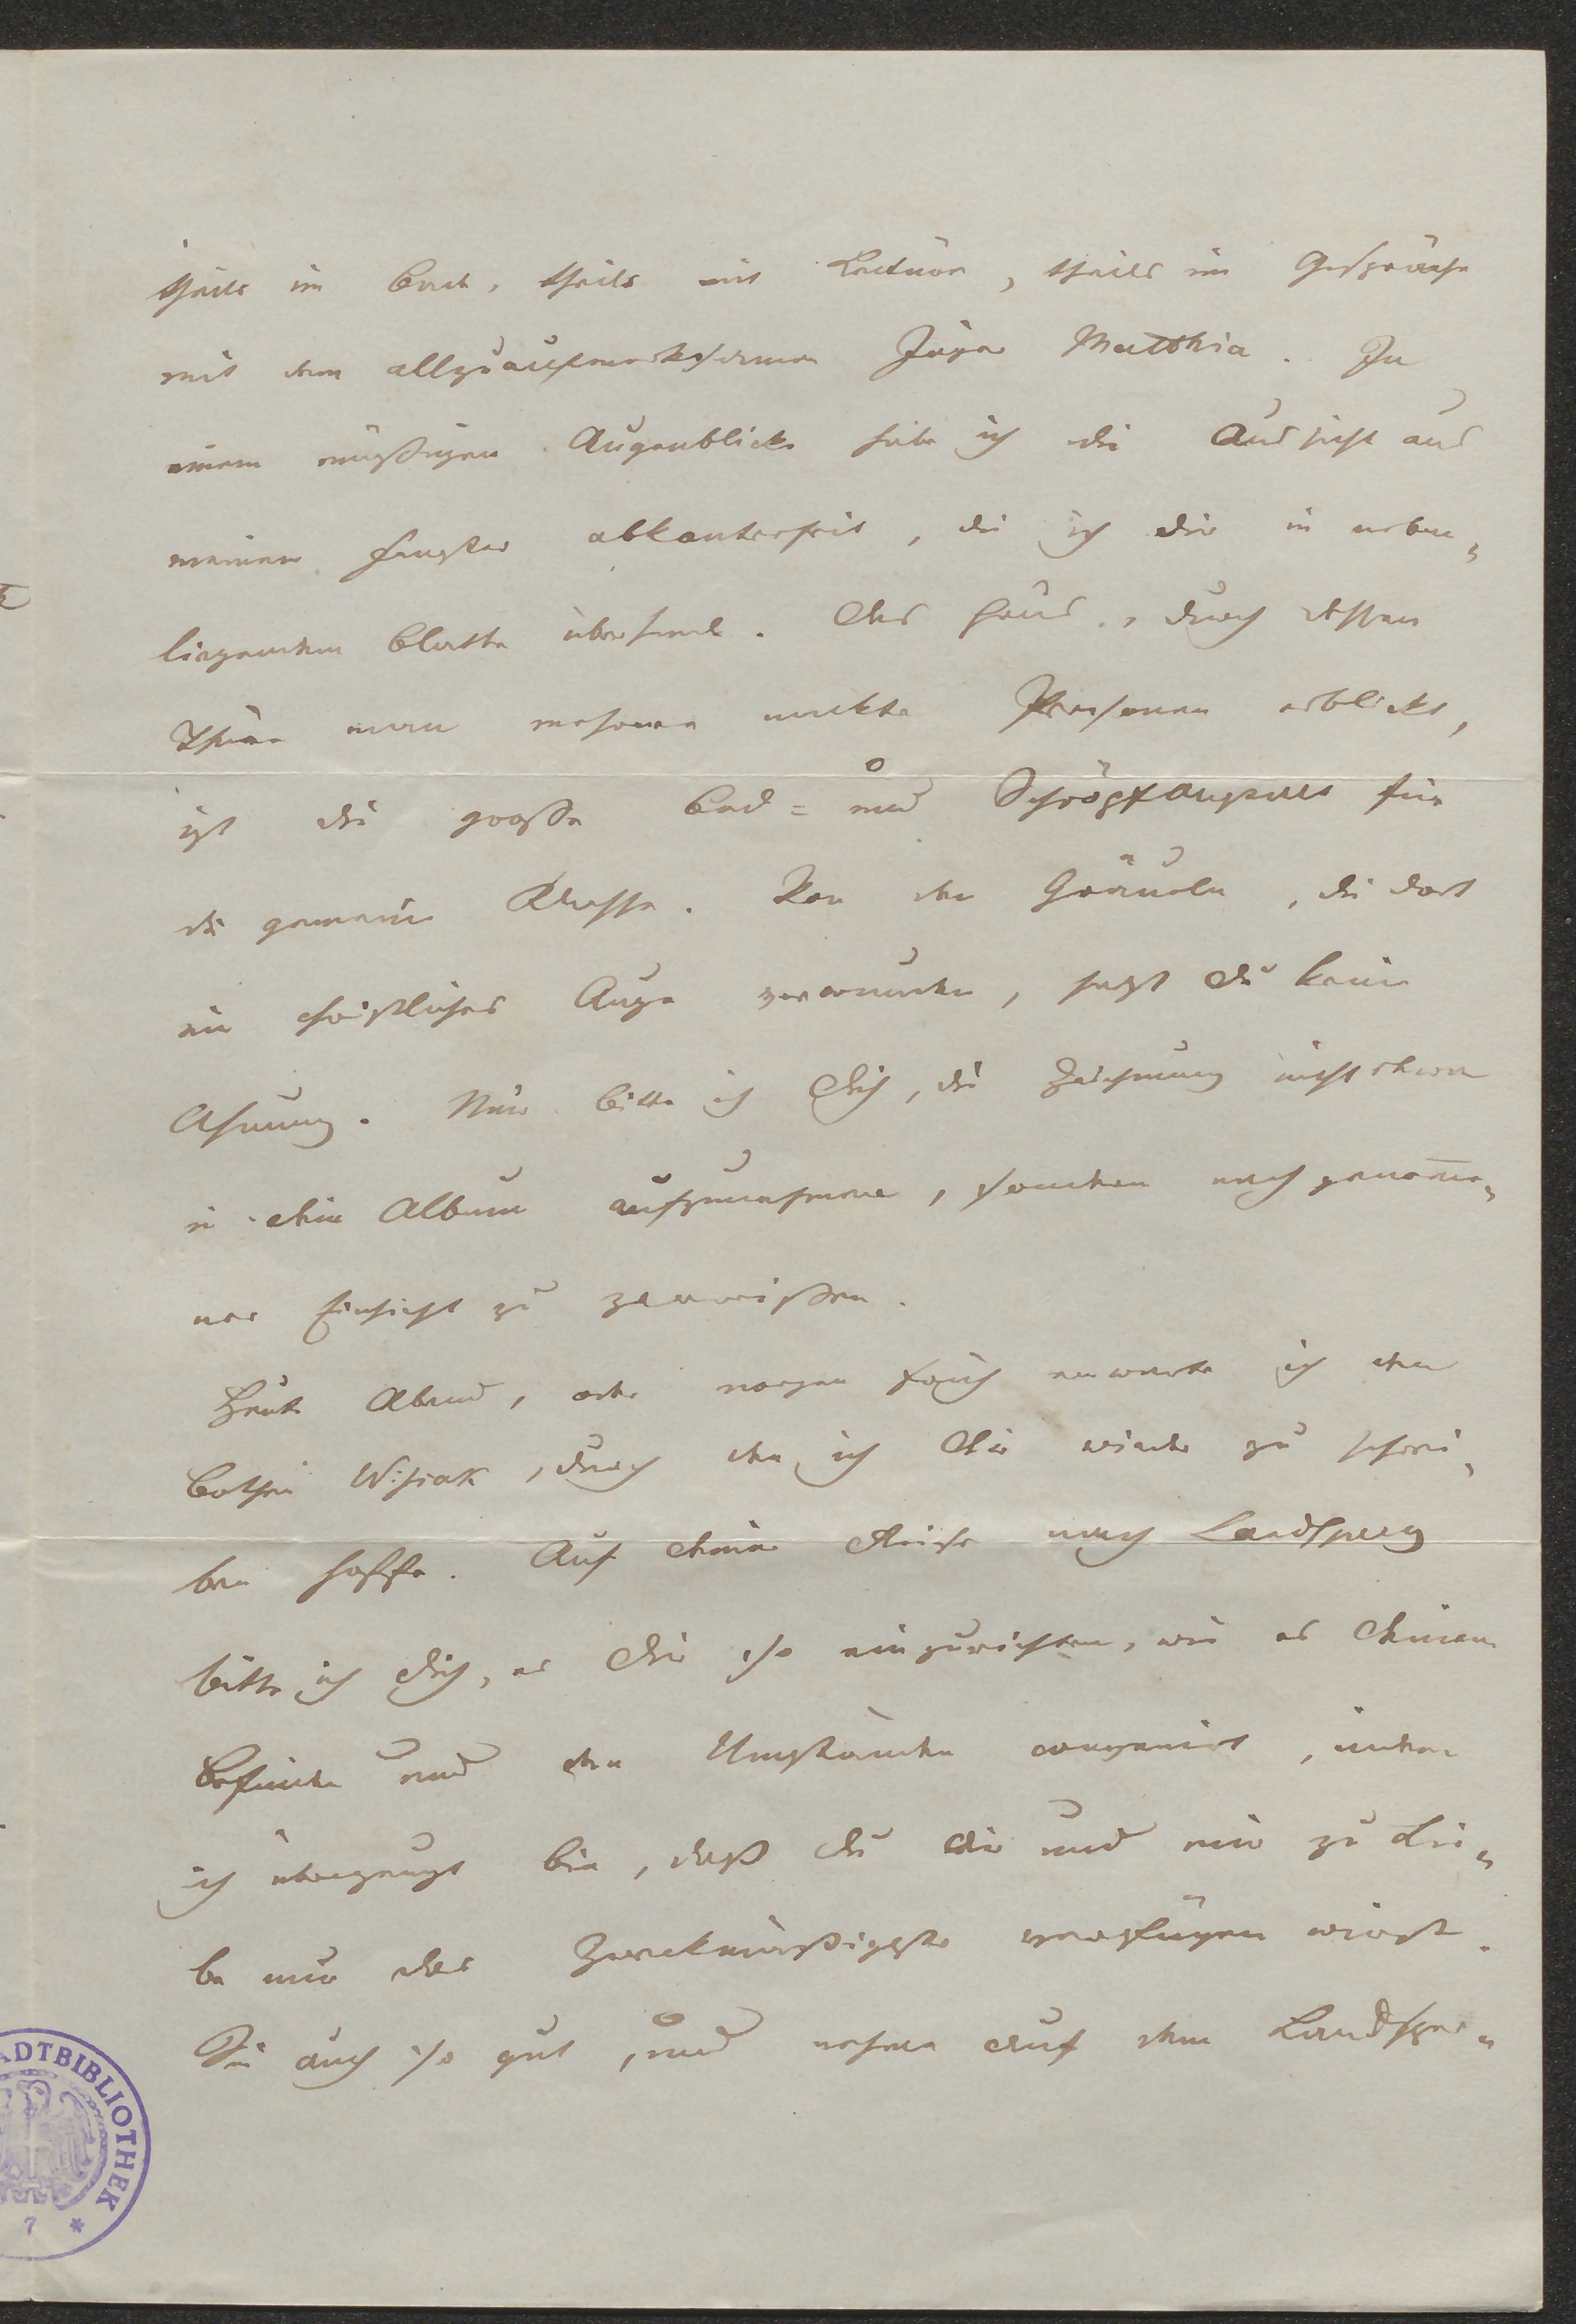 theils im Bad, theils mit Lectüre, theils im Gespräche
mit dem allzuaufmerksamen Jäger Matthia. In
einem müßigen Augenblicke habe ich die Aussicht aus
meinem Fenster abkonterfeit, die ich dir in neben-
liegendem Blatte übersende. Das Haus, durch dessen
Thüre man mehrere nackte Personen erblickt,
ist die große Bad= und Schröpfanstalt für
die gemeine Klasse. Von den Gräueln, die dort
ein christliches Auge verwunden, hast du keine
Ahnung. Nur bitte ich Dich, die Zeichnung nicht etwa
in dein Album aufzunehmen, sondern nach genom̅e-
ner Einsicht zu zerreißen.
Heute Abend, oder morgen früh erwarte ich den
Bothen Wisiak, durch den ich Dir wieder zu schrei-
ben hoffe. Auf deine Reise nach Landsperg
bitte ich dich, es Dir so einzurichten, wie es Deinem
Befinden und den Umständen convenirt, indem
ich überzeugt bin, daß du dir und mir zu Lie-
be nur das Zweckmäßigste verfügen wirst.
Sei auch so gut, und nehme auf dem Landsper-
ADTBIBLIOTHEK
7 *